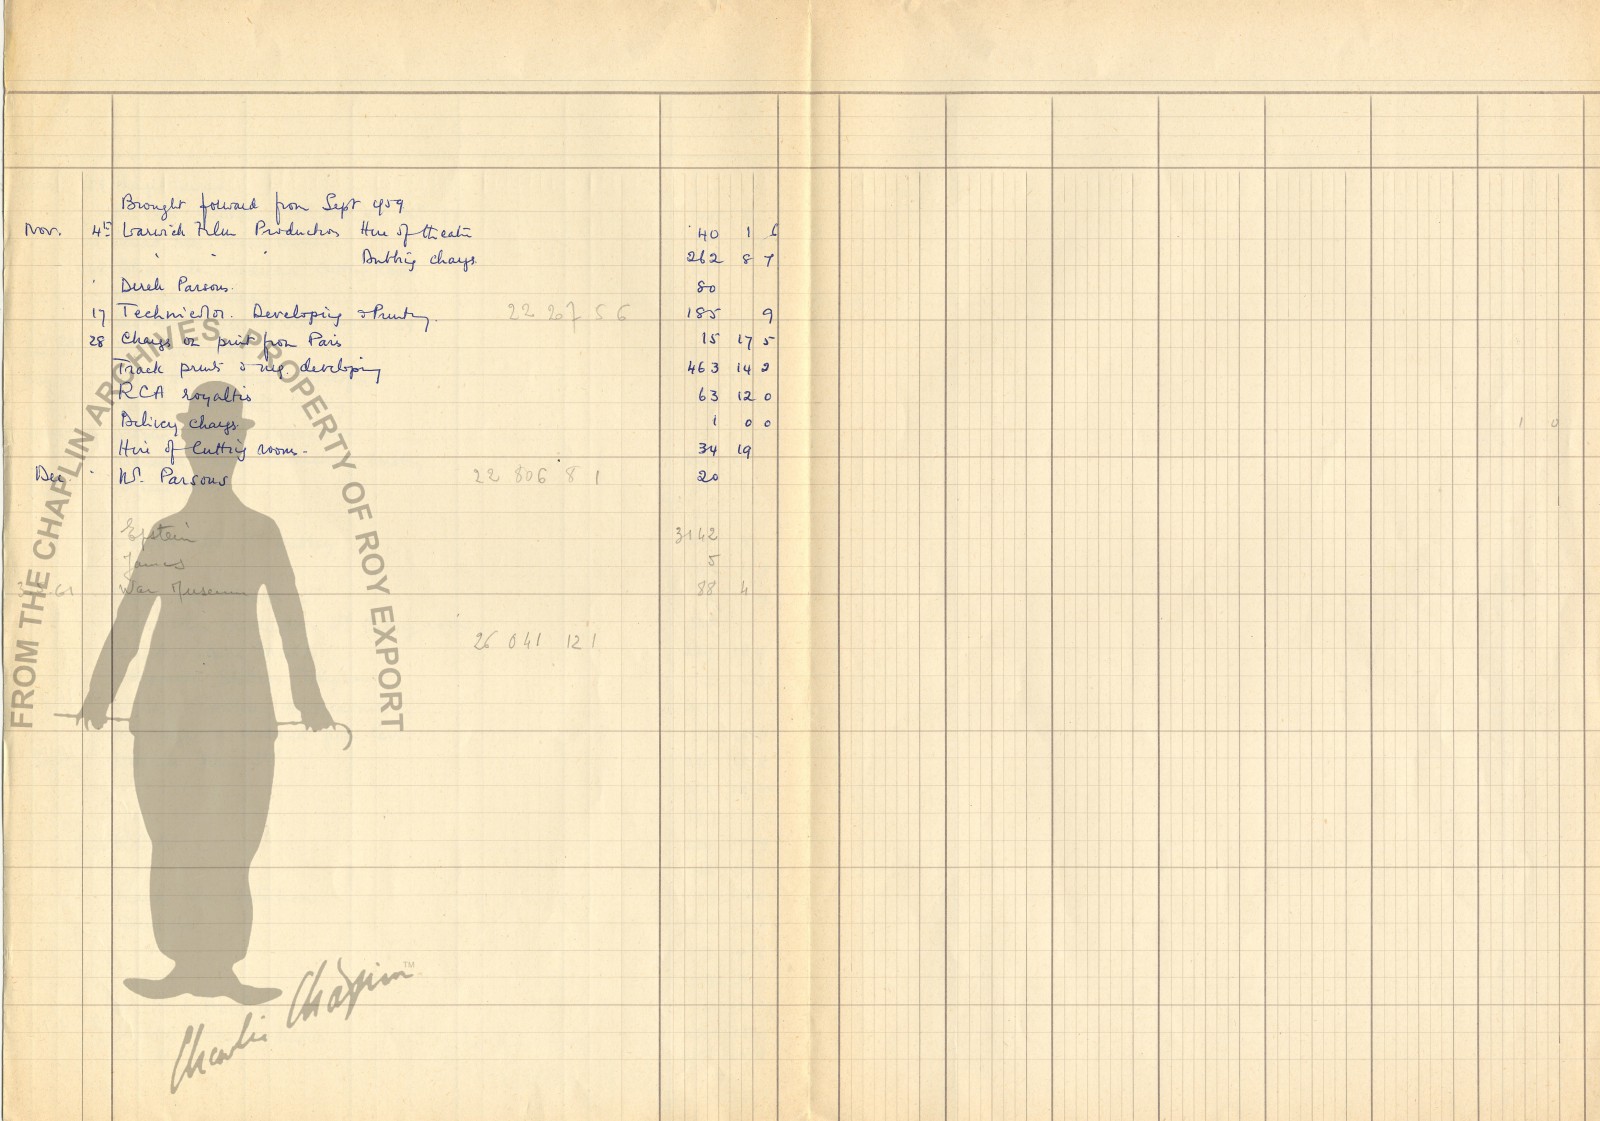 Brought forward from Sept 1959
Nov. 4th Warwick Film Productions Hire of theatre 40 1 6
" " " Dubbing charges 262 8 7
" Derek Parsons. 80
17 Technicolor. Developing & Printing. 22 267 5 6 185 9
28 Charges on print from Paris 15 17 5
Track prints & neg. developing 463 14 2
RCA royalties 63 12 0
Delivery charges 1 0 0 1 0
Hire of Cutting rooms. 34 19
Dec " Mr. Parsons 22 806 8 1 20
Epstein 3142
James 5
61 War Museum 88 4
26 041 12 1
FROM THE CHAPLIN ARCHIVES. PROPERTY OF ROY EXPORT
Charlie Chaplin™